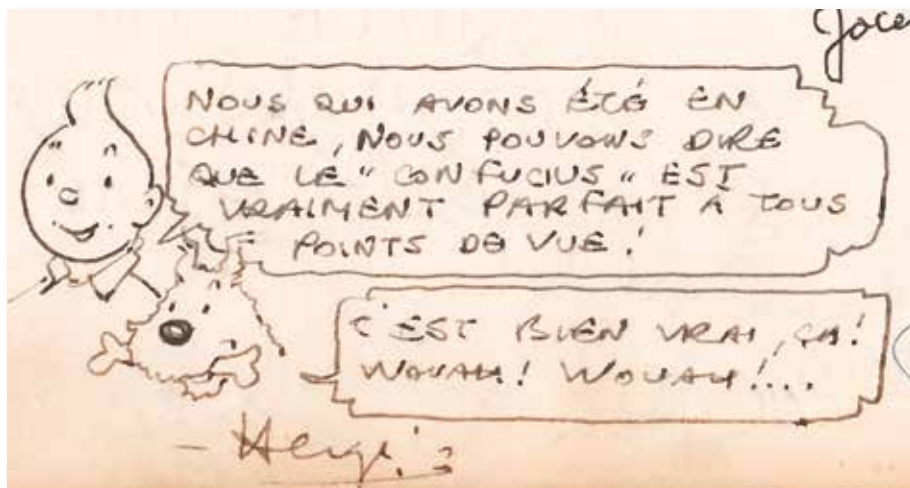 Joce
NOUS QUI AVONS ÉTÉ EN
CHINE, NOUS POUVONS DIRE
QUE LE "CONFUCIUS" EST
VRAIMENT PARFAIT À TOUS
POINTS DE VUE!
C'EST BIEN VRAI, ÇA!
WOUAH! WOUAH!....
- Hergé